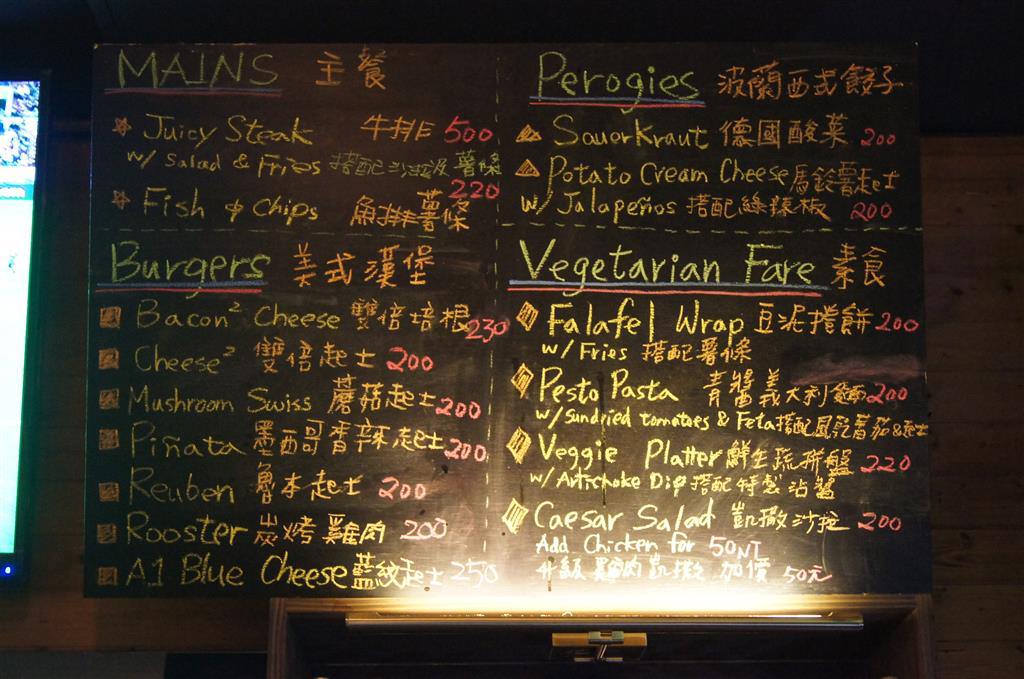 MAINS 主餐
Juicy Steak 牛排 500
w/ Salad & Fries 搭配沙拉及薯條
220
Fish & Chips 魚排薯條
Burgers 美式漢堡
Bacon² Cheese 雙倍培根 230
Cheese² 雙倍起士 200
Mushroom Swiss 蘑菇起士 200
Piñata 墨西哥香辣起士 200
Reuben 魯本起士 200
Rooster 炭烤雞肉 200
A1 Blue Cheese 藍紋起士 250
Perogies 波蘭西式餃子
SauerKraut 德國酸菜 200
Potato Cream Cheese 馬鈴薯起士
w/ Jalapeños 搭配綠辣椒 200
Vegetarian Fare 素食
Falafel Wrap 豆泥捲餅 200
w/ Fries 搭配薯條
Pesto Pasta 青醬義大利麵 200
w/ Sundried tomatoes & Feta 搭配風乾番茄&起士
Veggie Platter 鮮生蔬拼盤 220
w/ Artichoke Dip 搭配特製沾醬
Caesar Salad 凱撒沙拉 200
Add Chicken for 50NT
升級雞肉凱撒 加價 50元